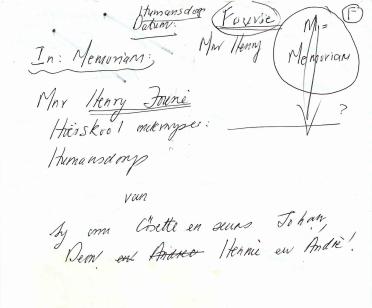 Humansdorp
Datum:
Fourie
Mnr Henry
F
M =
Memoriam
In: Memoriam:
Mnr Henry Fourie
?
Hoërskool
Humansdorp
van
Sy Cisette en seuns Johan,
Deon en Andreo Hennie en André!